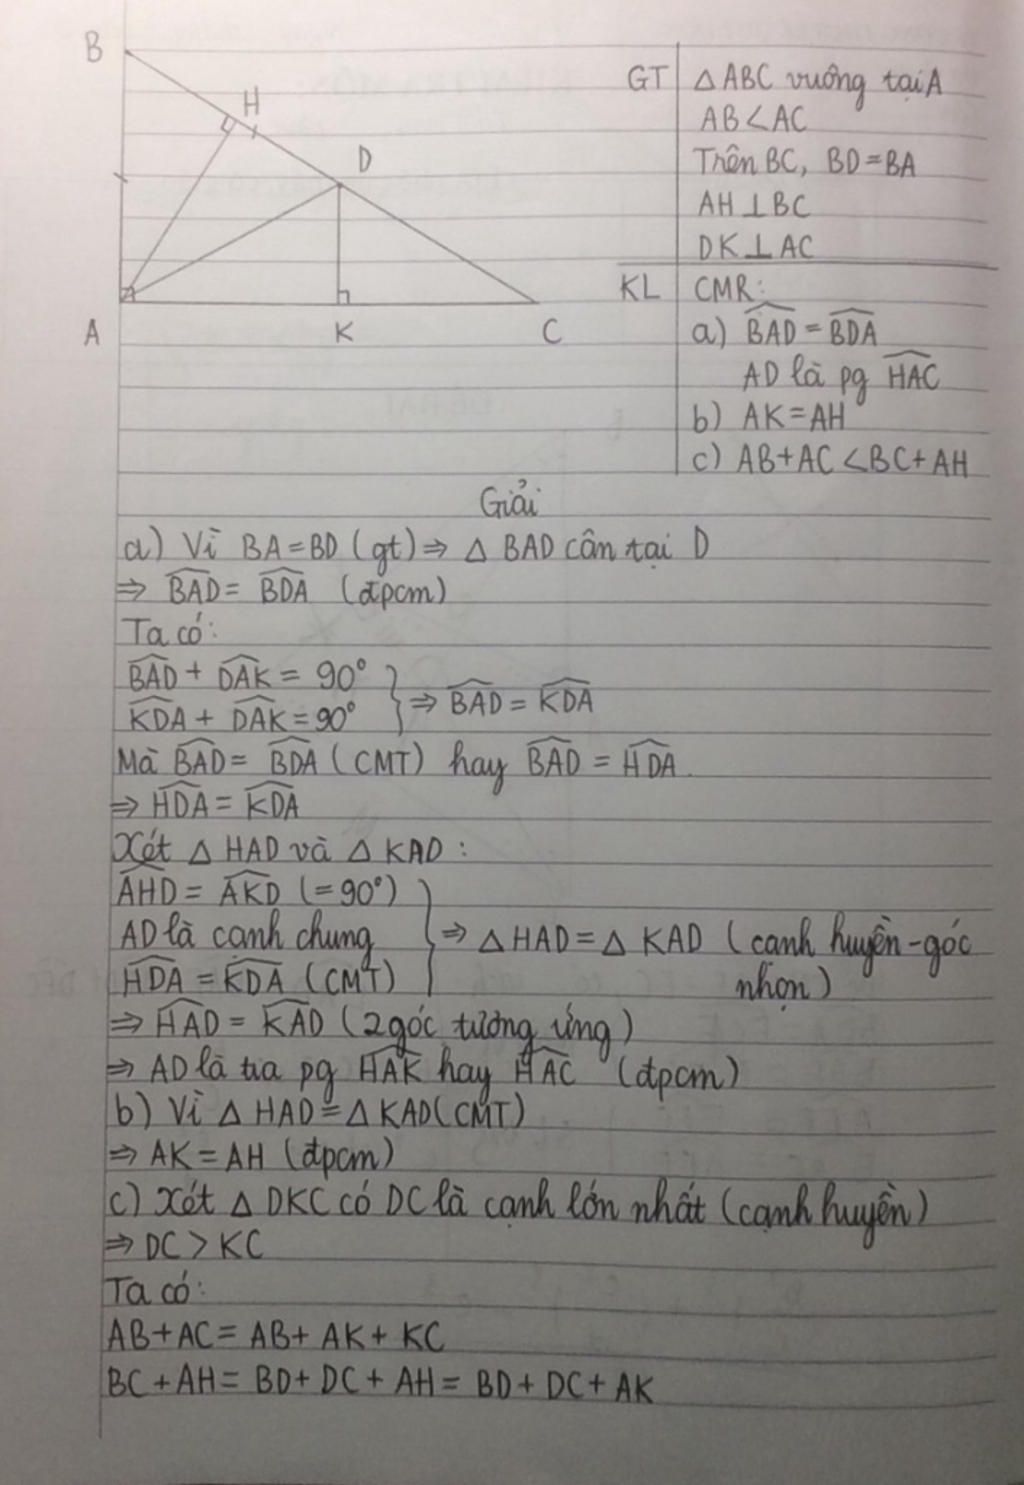 B
H
D
A
K
C
GT
△ABC vuông tại A
AB < AC
Trên BC, BD = BA
AH ⊥ BC
DK ⊥ AC
KL
CMR:
a) \widehat{BAD} = \widehat{BDA}
AD là pg \widehat{HAC}
b) AK = AH
c) AB + AC < BC + AH
Giải
a) Vì BA = BD (gt) ⇒ △ BAD cân tại D
⇒ \widehat{BAD} = \widehat{BDA} (đpcm)
Ta có:
\widehat{BAD} + \widehat{DAK} = 90°
\widehat{KDA} + \widehat{DAK} = 90°
} ⇒ \widehat{BAD} = \widehat{KDA}
Mà \widehat{BAD} = \widehat{BDA} (CMT) hay \widehat{BAD} = \widehat{HDA}.
⇒ \widehat{HDA} = \widehat{KDA}
Xét △ HAD và △ KAD :
\widehat{AHD} = \widehat{AKD} (= 90°)
AD là cạnh chung
\widehat{HDA} = \widehat{KDA} (CMT)
} ⇒ △ HAD = △ KAD (cạnh huyền - góc
nhọn)
⇒ \widehat{HAD} = \widehat{KAD} (2 góc tương ứng)
⇒ AD là tia pg \widehat{HAK} hay \widehat{HAC} (đpcm)
b) Vì △ HAD = △ KAD (CMT)
⇒ AK = AH (đpcm)
c) Xét △ DKC có DC là cạnh lớn nhất (cạnh huyền)
⇒ DC > KC
Ta có:
AB + AC = AB + AK + KC
BC + AH = BD + DC + AH = BD + DC + AK